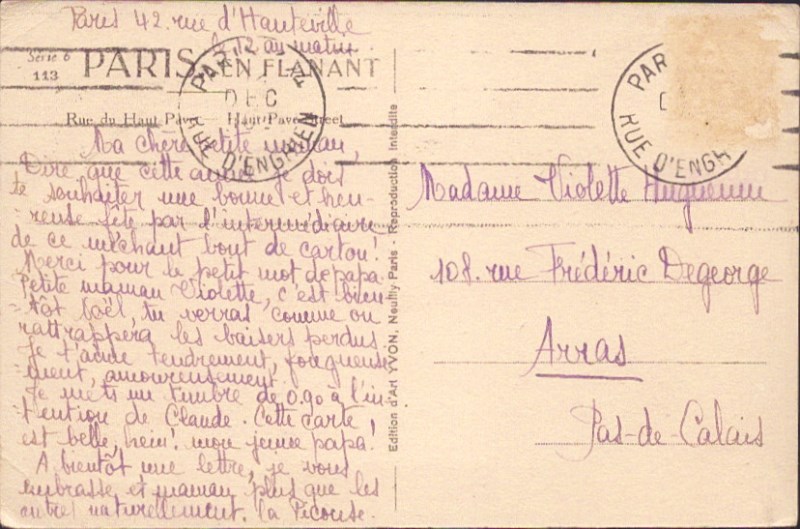 Paris 42. rue d'Hauteville
le 12 au matin.
Série 6
113
PARIS EN FLANANT
Rue du Haut Pavé — Haut-Pavé Street
PARIS
DEC
RUE D'ENGHIEN
Ma chère petite maman,
Dire que cette année je dois
te souhaiter une bonne et heu-
reuse fête par l'intermédiaire
de ce méchant bout de carton!
Merci pour le petit mot de papa.
Petite maman Violette, c'est bien-
-tôt Noël, tu verras comme on
rattrappera les baisers perdus.
Je t'aime tendrement, fougueuse-
-ment, amoureusement.
Je mets un timbre de 0.90 à l'in-
-tention de Claude. Cette carte
est belle, hein! mon jeune papa!
A bientôt une lettre, je vous
embrasse, et maman plus que les
autres naturellement. la
Edition d'Art YVON, Neuilly Paris - Reproduction interdite
PAR
RUE D'ENGH
Madame Violette Huguenin
108. rue Frédéric Degeorge
Arras
Pas-de-Calais